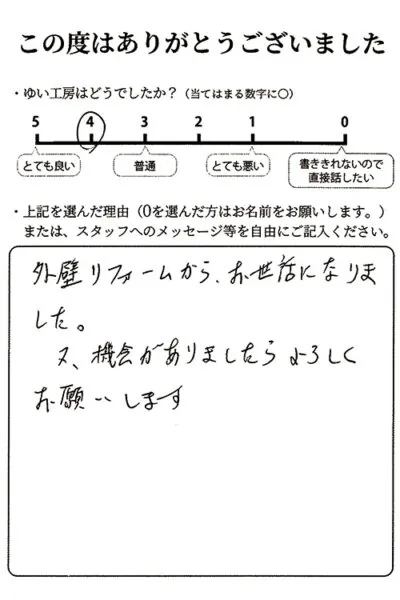 この度はありがとうございました
・ゆい工房はどうでしたか？（当てはまる数字に〇）
5 4 3 2 1 0
とても良い 普通 とても悪い 書ききれないので
直接話したい
・上記を選んだ理由（0を選んだ方はお名前をお願いします。）
または、スタッフへのメッセージ等を自由にご記入ください。
外壁リフォームから、お世話になりま
した。
又、機会がありましたらよろしく
お願いします